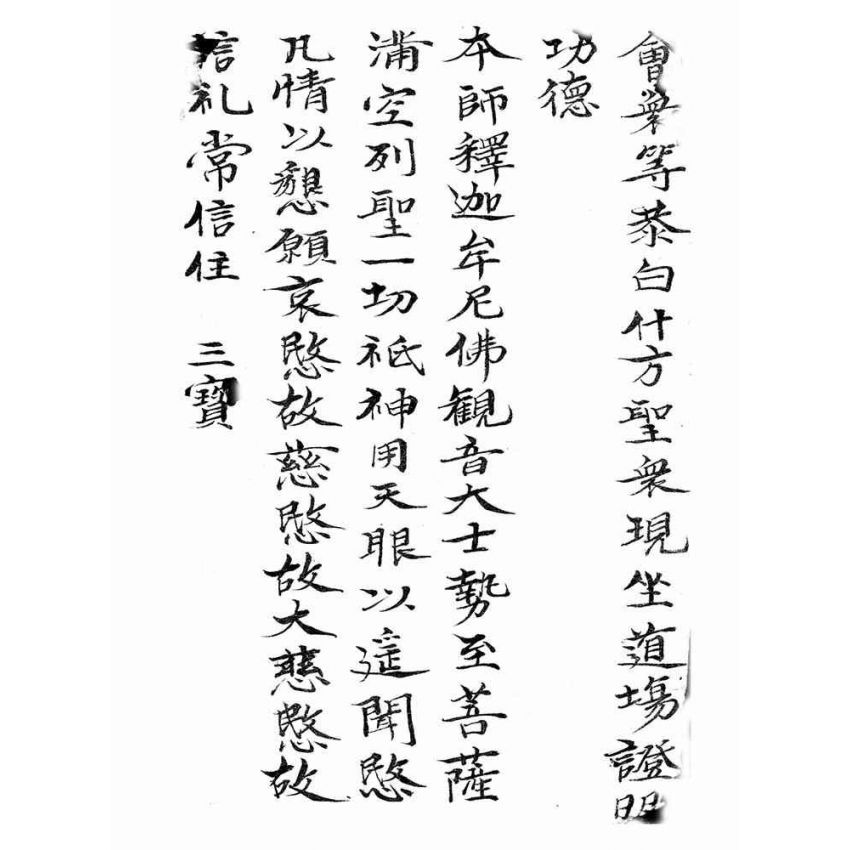 會衆等恭白什方聖衆現坐道場證明
功德
本師釋迦牟尼佛觀音大士勢至菩薩
滿空列聖一切祇神用天眼以遥聞愍
凡情以懇願哀愍故慈愍故大慈愍故
信礼常信住 三寶